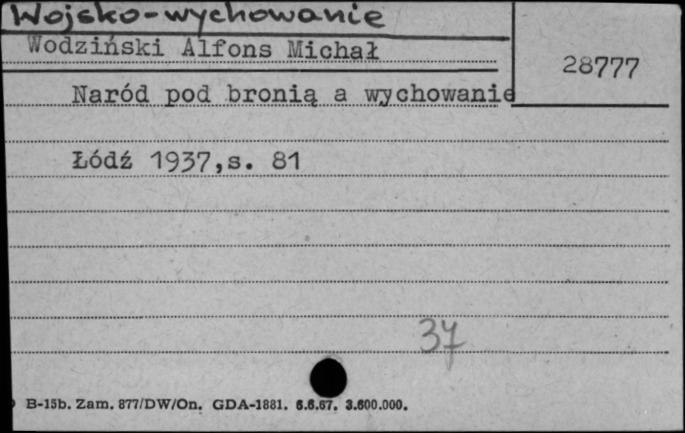 Wojsko-wychowanie
Wodziński Alfons Michał
28777
Naród pod bronią a wychowanie
Łódź 1937,s. 81
37
B-15b. Zam. 877/DW/On. GDA-1881. 6.6.67. 3.600.000.